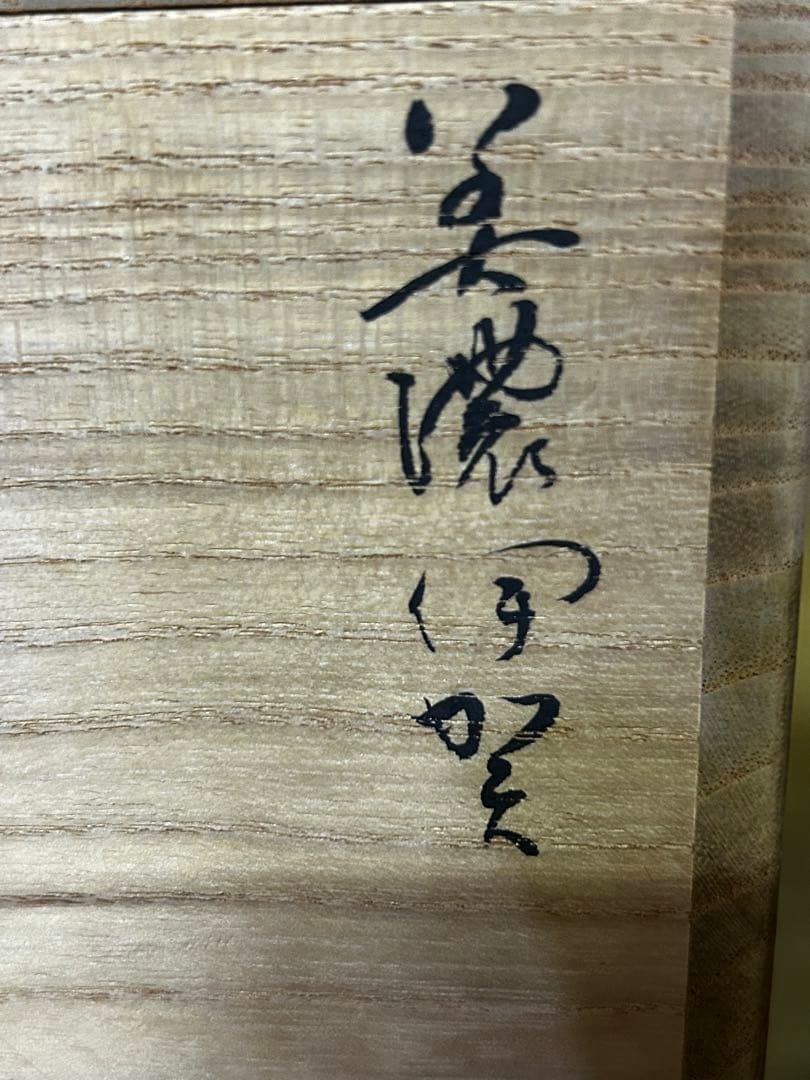 美濃伊賀